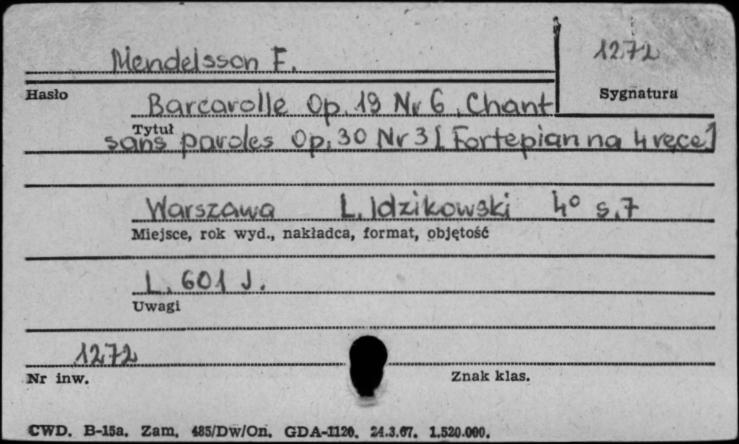 Mendelsson F.
1272
Hasło
Sygnatura
Barcarolle Op. 19 Nr 6, Chant
Tytuł
sans paroles Op. 30 Nr 3 [Fortepian na 4 ręce]
Warszawa L. Idzikowski 4° s. 7
Miejsce, rok wyd., nakładca, format, objętość
L. 601 J.
Uwagi
1272
Nr inw.
Znak klas.
CWD. B-15a. Zam. 485/Dw/On. GDA-1120. 24.3.67. 1.520.000.